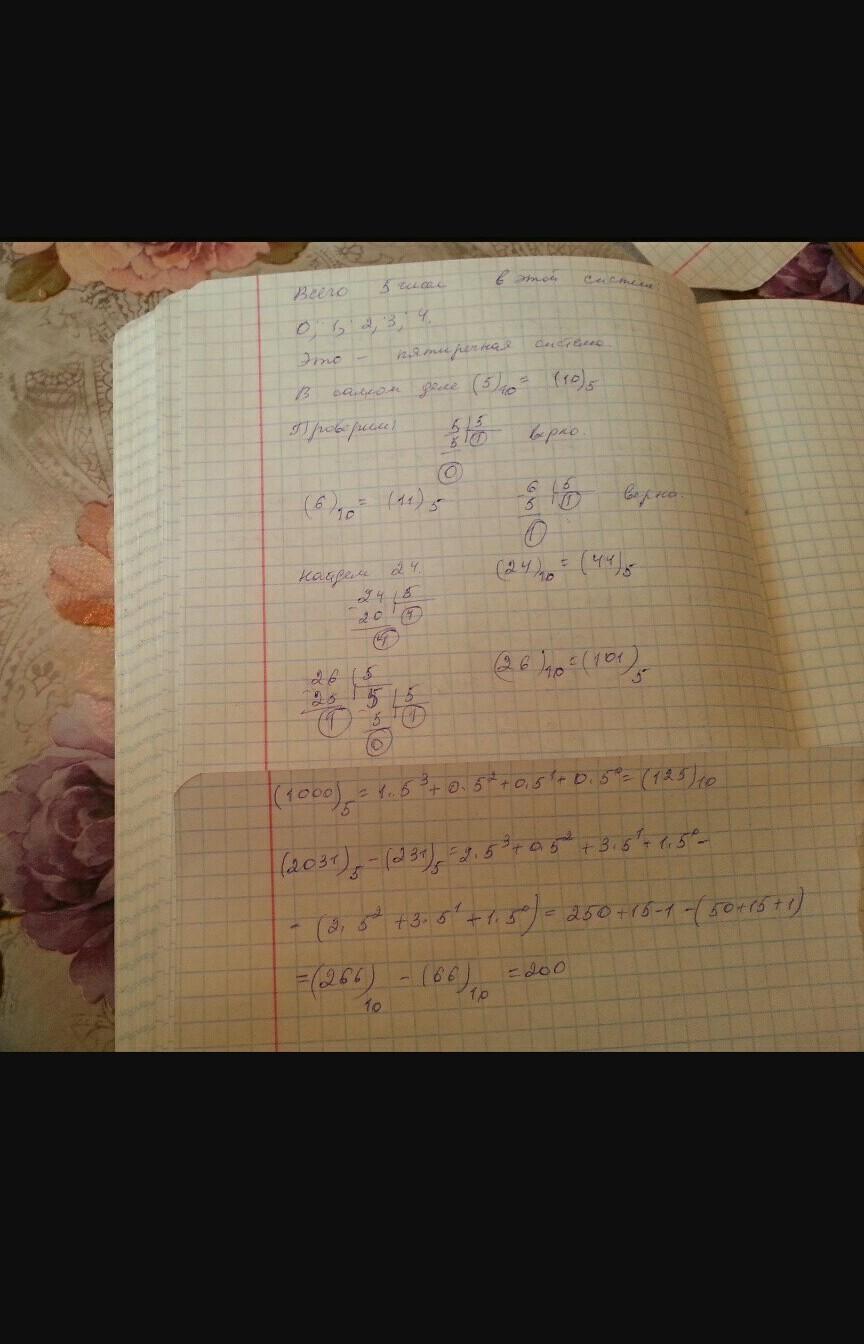 Всего 5 чисел в этой системе.
0, 1, 2, 3, 4.
Это - пятиречная система.
В самом деле (5)₁₀ = (10)₅
Проверим: 5 | 5 верно.
5 | 1
0
(6)₁₀ = (11)₅ 6 | 5 верно.
5 | 1
1
Найдем 24. (24)₁₀ = (44)₅
24 | 5
20 | 4
4
26 | 5 (26)₁₀ = (101)₅
25 | 5 | 5
1 5 | 1
0
(1000)₅ = 1·5³ + 0·5² + 0·5¹ + 0·5⁰ = (125)₁₀
(2031)₅ - (231)₅ = 2·5³ + 0·5² + 3·5¹ + 1·5⁰ -
- (2·5² + 3·5¹ + 1·5⁰) = 250 + 15 - 1 - (50 + 15 + 1)
= (266)₁₀ - (66)₁₀ = 200